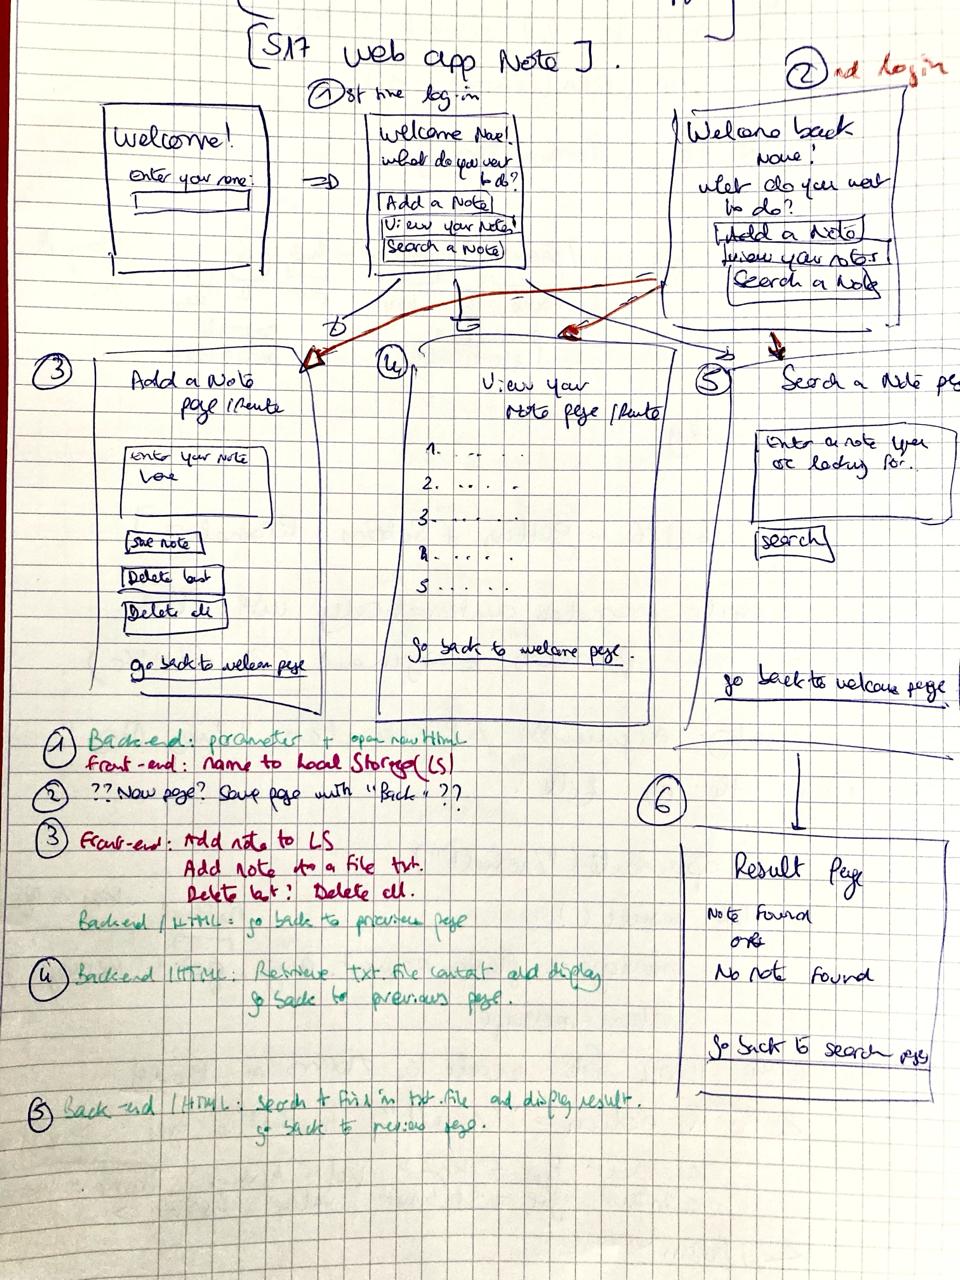 [S17 Web app Note].
① st time log-in
② nd login
Welcome!
Enter your name:
Welcome Name!
What do you want
to do?
Add a Note
View your Notes
Search a Note
Welcome back
Name!
What do you want
to do?
Add a Note
View your notes
Search a Note
③
Add a Note
page /Route
Enter your Note
here
Save note
Delete last
Delete all
go back to welcom page
④
View your
Note page /Route
1. . . . .
2. . . . .
3. . . . .
4. . . . .
5 . . . . .
go back to welcome page.
⑤
Search a Note pa
Enter a note you
are looking for..
Search
go back to welcome page
① Back-end: parameter + open new Html
Front-end: Name to Local Storage (LS)
② ?? New page? Save page with "Back" ??
③ Front-end: Add note to LS
Add Note to a file txt.
Delete last? Delete all.
Backend / HTML: go back to previous page
④ Backend / HTML: Retrieve txt. file content and display
go back to previous page.
⑤ Back-end / HTML: Search + find in txt. file and display result.
go back to previous page.
⑥
Result Page
Note Found
or
No note Found
go back to search page